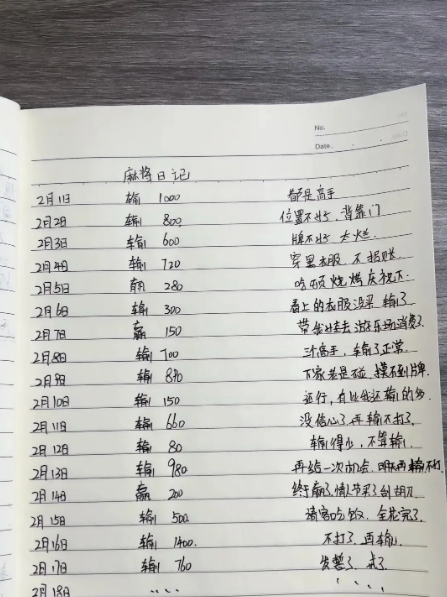 No.
Date.
麻将日记
2月1日 输 1000 都是高手
2月2日 输 800 位置不好,背靠门
2月3日 输 600 牌不好 太烂.
2月4日 输 720 穿黑衣服,不招财.
2月5日 赢 280 吃顿烧烤庆祝下.
2月6日 输 300 看上的衣服没买 输了
2月7日 赢 150 带娃去游乐场消费了
2月8日 输 700 三个高手,输了正常.
2月9日 输 840 下家老是碰 摸不到牌.
2月10日 输 150 还行,有比我还输的多.
2月11日 输 660 没信心了再输不打了.
2月12日 输 80 输得少,不算输.
2月13日 输 980 再给一次机会.明再输不打
2月14日 赢 200 终于赢了情人节买了刮胡刀
2月15日 输 500 请客吃饭,全花完了
2月16日 输 1400. 不打了,再输.
2月17日 输 760 发誓了,戒了
2月18日 .... ....